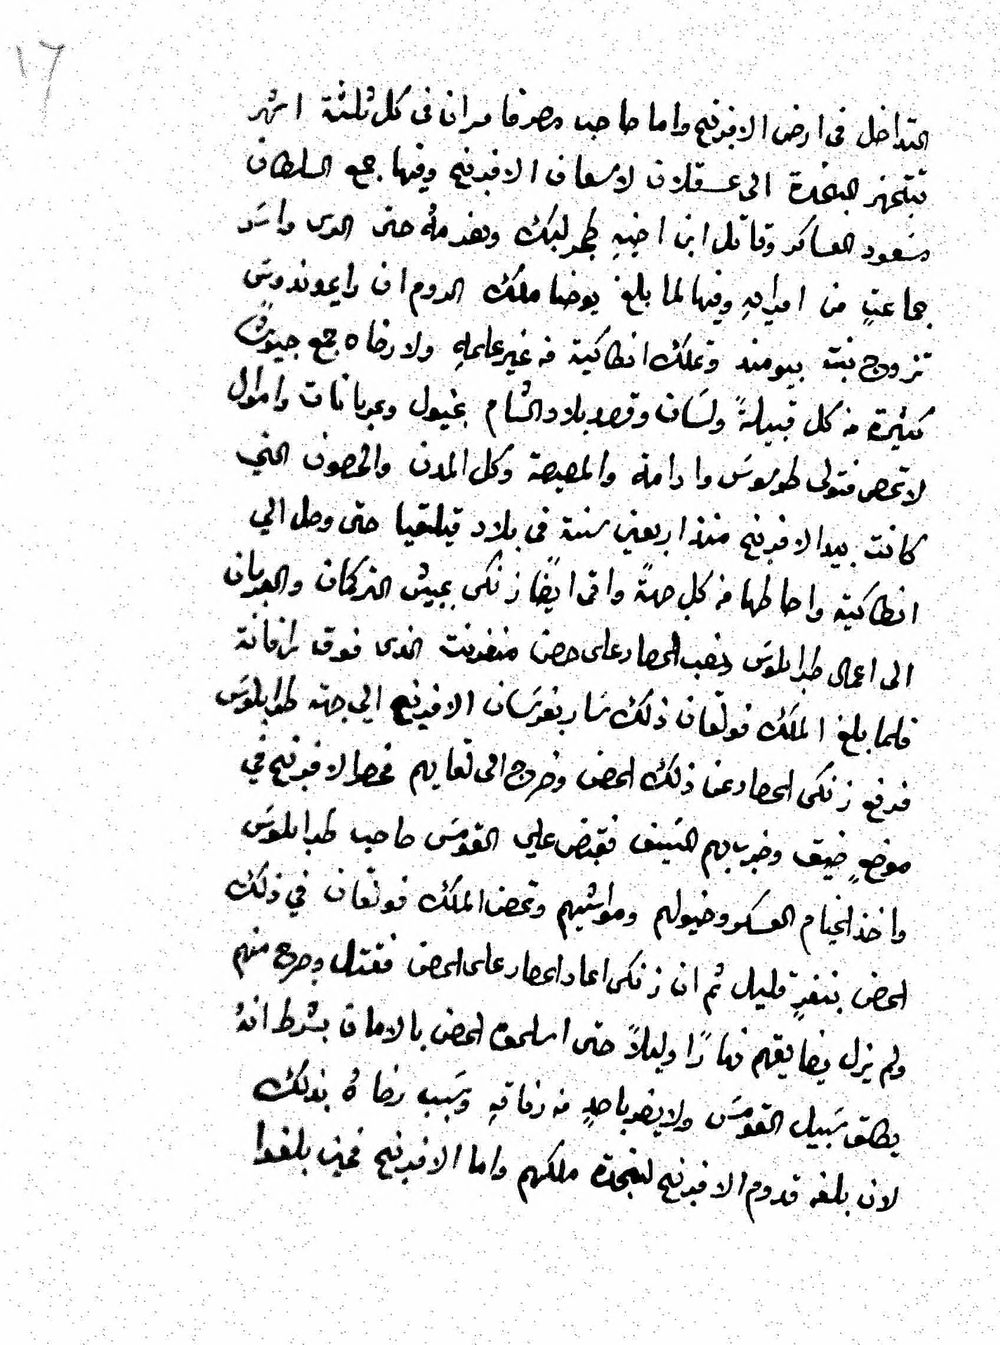 ١٦
التداخل فى ارض الافرنج واما صاحب مصر فامر ان فى كل ثلثة اشهر
تتجهز النجدة الى عسقلان لاسعاف الافرنج وفيها جمع السلطان
مسعود العساكر وقاتل ابن اخيه وهزمهُ حتى الدى واسَر
جماعةٍ من امرايهِ وفيها لما بلغ يوحنا ملك الروم ان رايموندوسَ
تزوج بنت بيومند وتملك انطاكية من غير علمهِ ولا رضاه جمع جيوشًا
كثيرة من كل قبيلةً ولسَان وقصد بلاد الشام بخيول وعربانات واموال
لا تحصى فتولى طرسوسَ وادامة والمصيصة وكل المدن والحصون التي
كانت بيد الافرنج منذ اربعين سنة فى بلاد قيلقيا حتى وصل الي
انطاكية واحاطها من كل جهةً واتى ايضًا زنكى بجيش التركمان والعربان
الى اعمال طرابلوسَ ونصب الحصار على حصن منفرنت الذى فوق رافانة
فلما بلغ الملك فولقان ذلك سَار بفرسَان الافرنج الي جهة طرابلوسَ
فرفع زنكى الحصار عن ذلك الحصن وخرج الى لقايهم فحصر الافرنج في
موضعٍ ضيق وضربهم السَيف فقبض علي القومسَ صاحب طرابلوسَ
واخذ خيام العسكر وخيولهم ومواشيهم وتحصن الملك فولقان في ذلك
الحصن بنفرٍ قليل ثم ان زنكى اعاد الحصار على الحصن فقتل وجرح منهم
ولم يزل يضايقهم نهارًا وليلاً حتى اسلموه الحصن بالامان بشرط انهُ
يطلق سَبيل القومسَ ولا يضر باحدٍ من رفاقهِ وسَبب رضاهُ بذلك
لان بلغه قدوم الافرنج لنجدة ملكهم واما الافرنج فحين بلغوا